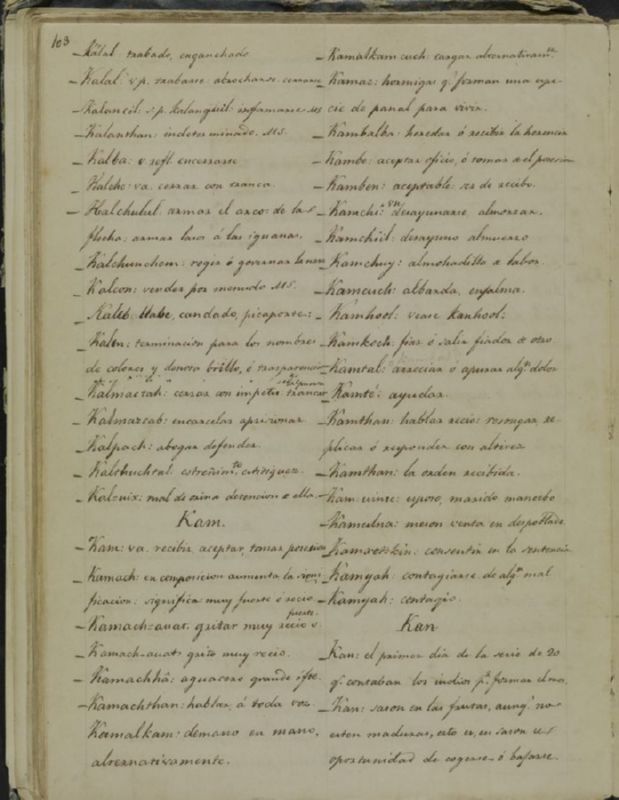 103
Kalal: trabado, enganchado
Kalal: v. p. trabarse abrocharse cerrarse
Kalancil: v p. Kalanquil: infamarse MS
Kalanthan: indeterminado. MS.
Kalba: v refl. encerrarse
Kalche: va. cerrar con tranca.
Kalchulul: armar el arco de la
flecha: armar laso á las iguanas.
Kalchunchem: regir ó governar
Kalcon: vender por menudo MS.
Kaleb: llabe, candado, picaporte:
Kalen: terminacion para los nombres
de colores y denota brillo, ó trasparencia
cerrar con impetu trancar
Kalmazcab: encarcelar aprisionar
Kalpach: abogar defender.
estreñimto. estitiquez.
Kalzuix: mal de orina detencion de ella.
Kam.
Kam: va. recibir, aceptar, tomar posesion
Kamach: en composicion aumenta la signi
ficacion: significa muy fuerte ó recio
Kamach-auat. gritar muy recio ó fuerte.
Kamach-auat: grito muy recio.
Kamachhá: aguacero grande
Kamachthan: hablar á toda voz.
Kamalkam: demano en mano,
alternativamente.
Kamalkam cuch: cargar alternativamte.
Kamaz: hormigas q. forman una espe
cie de panal para vivir.
Kambalba: heredar ó recibir la herencia
Kambe: aceptar oficio, ó tomar el posesion
Kamben: aceptable: es de recibo.
Kamchi: vn desayunarse almorzar.
Kamchiil: desayuno almuerzo
Kamchuy: almohadilla de labor.
Kamcuch: albarda, enjalma.
Kamhool: vease Kanhool:
Kamkoch: fiar ó salir fiador de otro
Kamtal: arreciar ó apurar algn. dolor
Kamté: ayudar.
Kamthan: hablar recio: rezongar re
plicar ó responder con altivez
Kamthan: la orden recibida.
Kam uinic: esposo, marido mancebo
Kamulna: meson venta en despoblado
consentir en la sentencia
Kamyah: contagiarse de algn. mal
Kamyah: contagio.
Kan
Kan: el primer dia de la serie de 20
q. contaban los indios pa. formar el mes.
Kan: sason en las frutas, aunq. no
esten maduras, esto es, en sason de
oportunidad de cogerse ó bajarse.